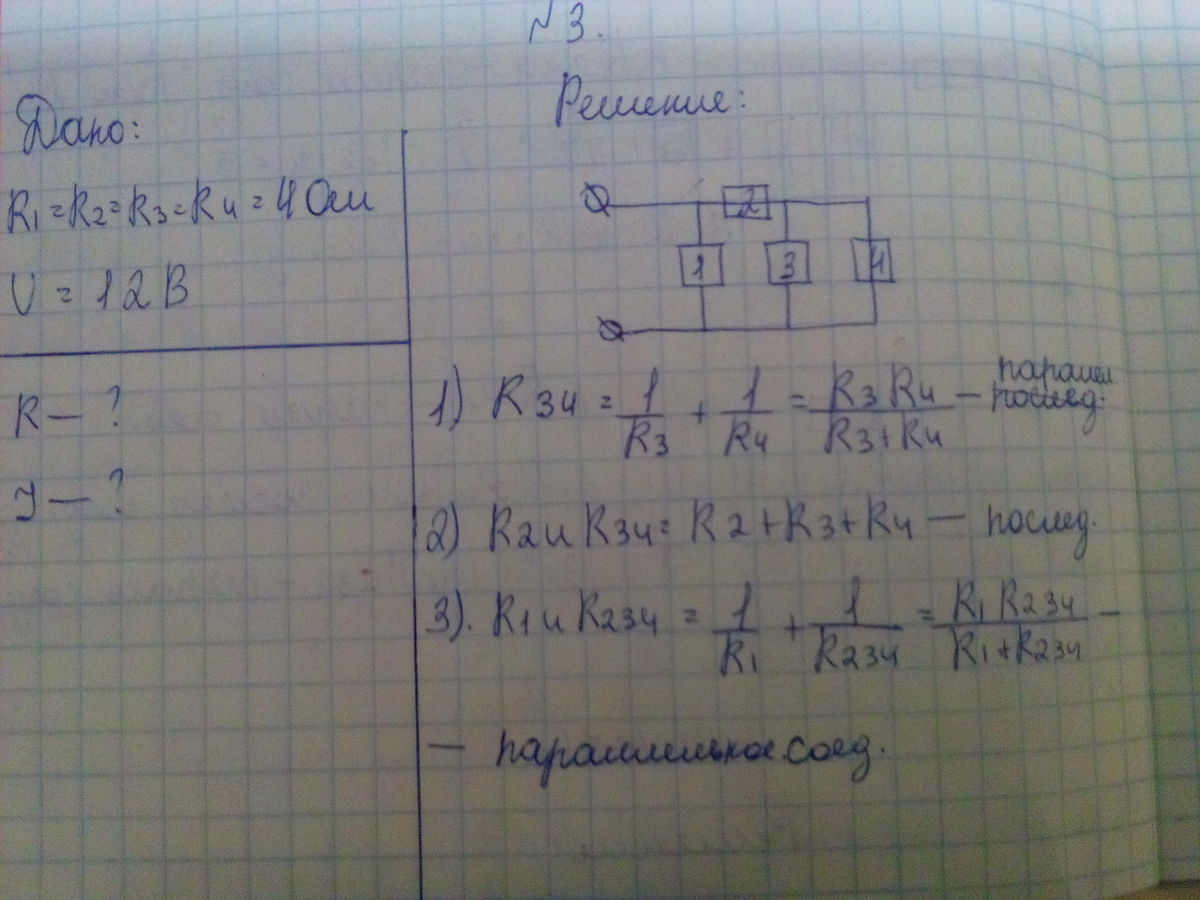 №3.
Дано:
R1=R2=R3=R4=4 Ом
U = 12 В
R — ?
I — ?
Решение:
2
1 3 4
1) R34 = 1/R3 + 1/R4 = R3 R4/R3+R4 — паралл послед.
2) R2 и R34 = R2 + R3 + R4 — послед.
3). R1 и R234 = 1/R1 + 1/R234 = R1 R234/R1+R234 —
— параллельное соед.